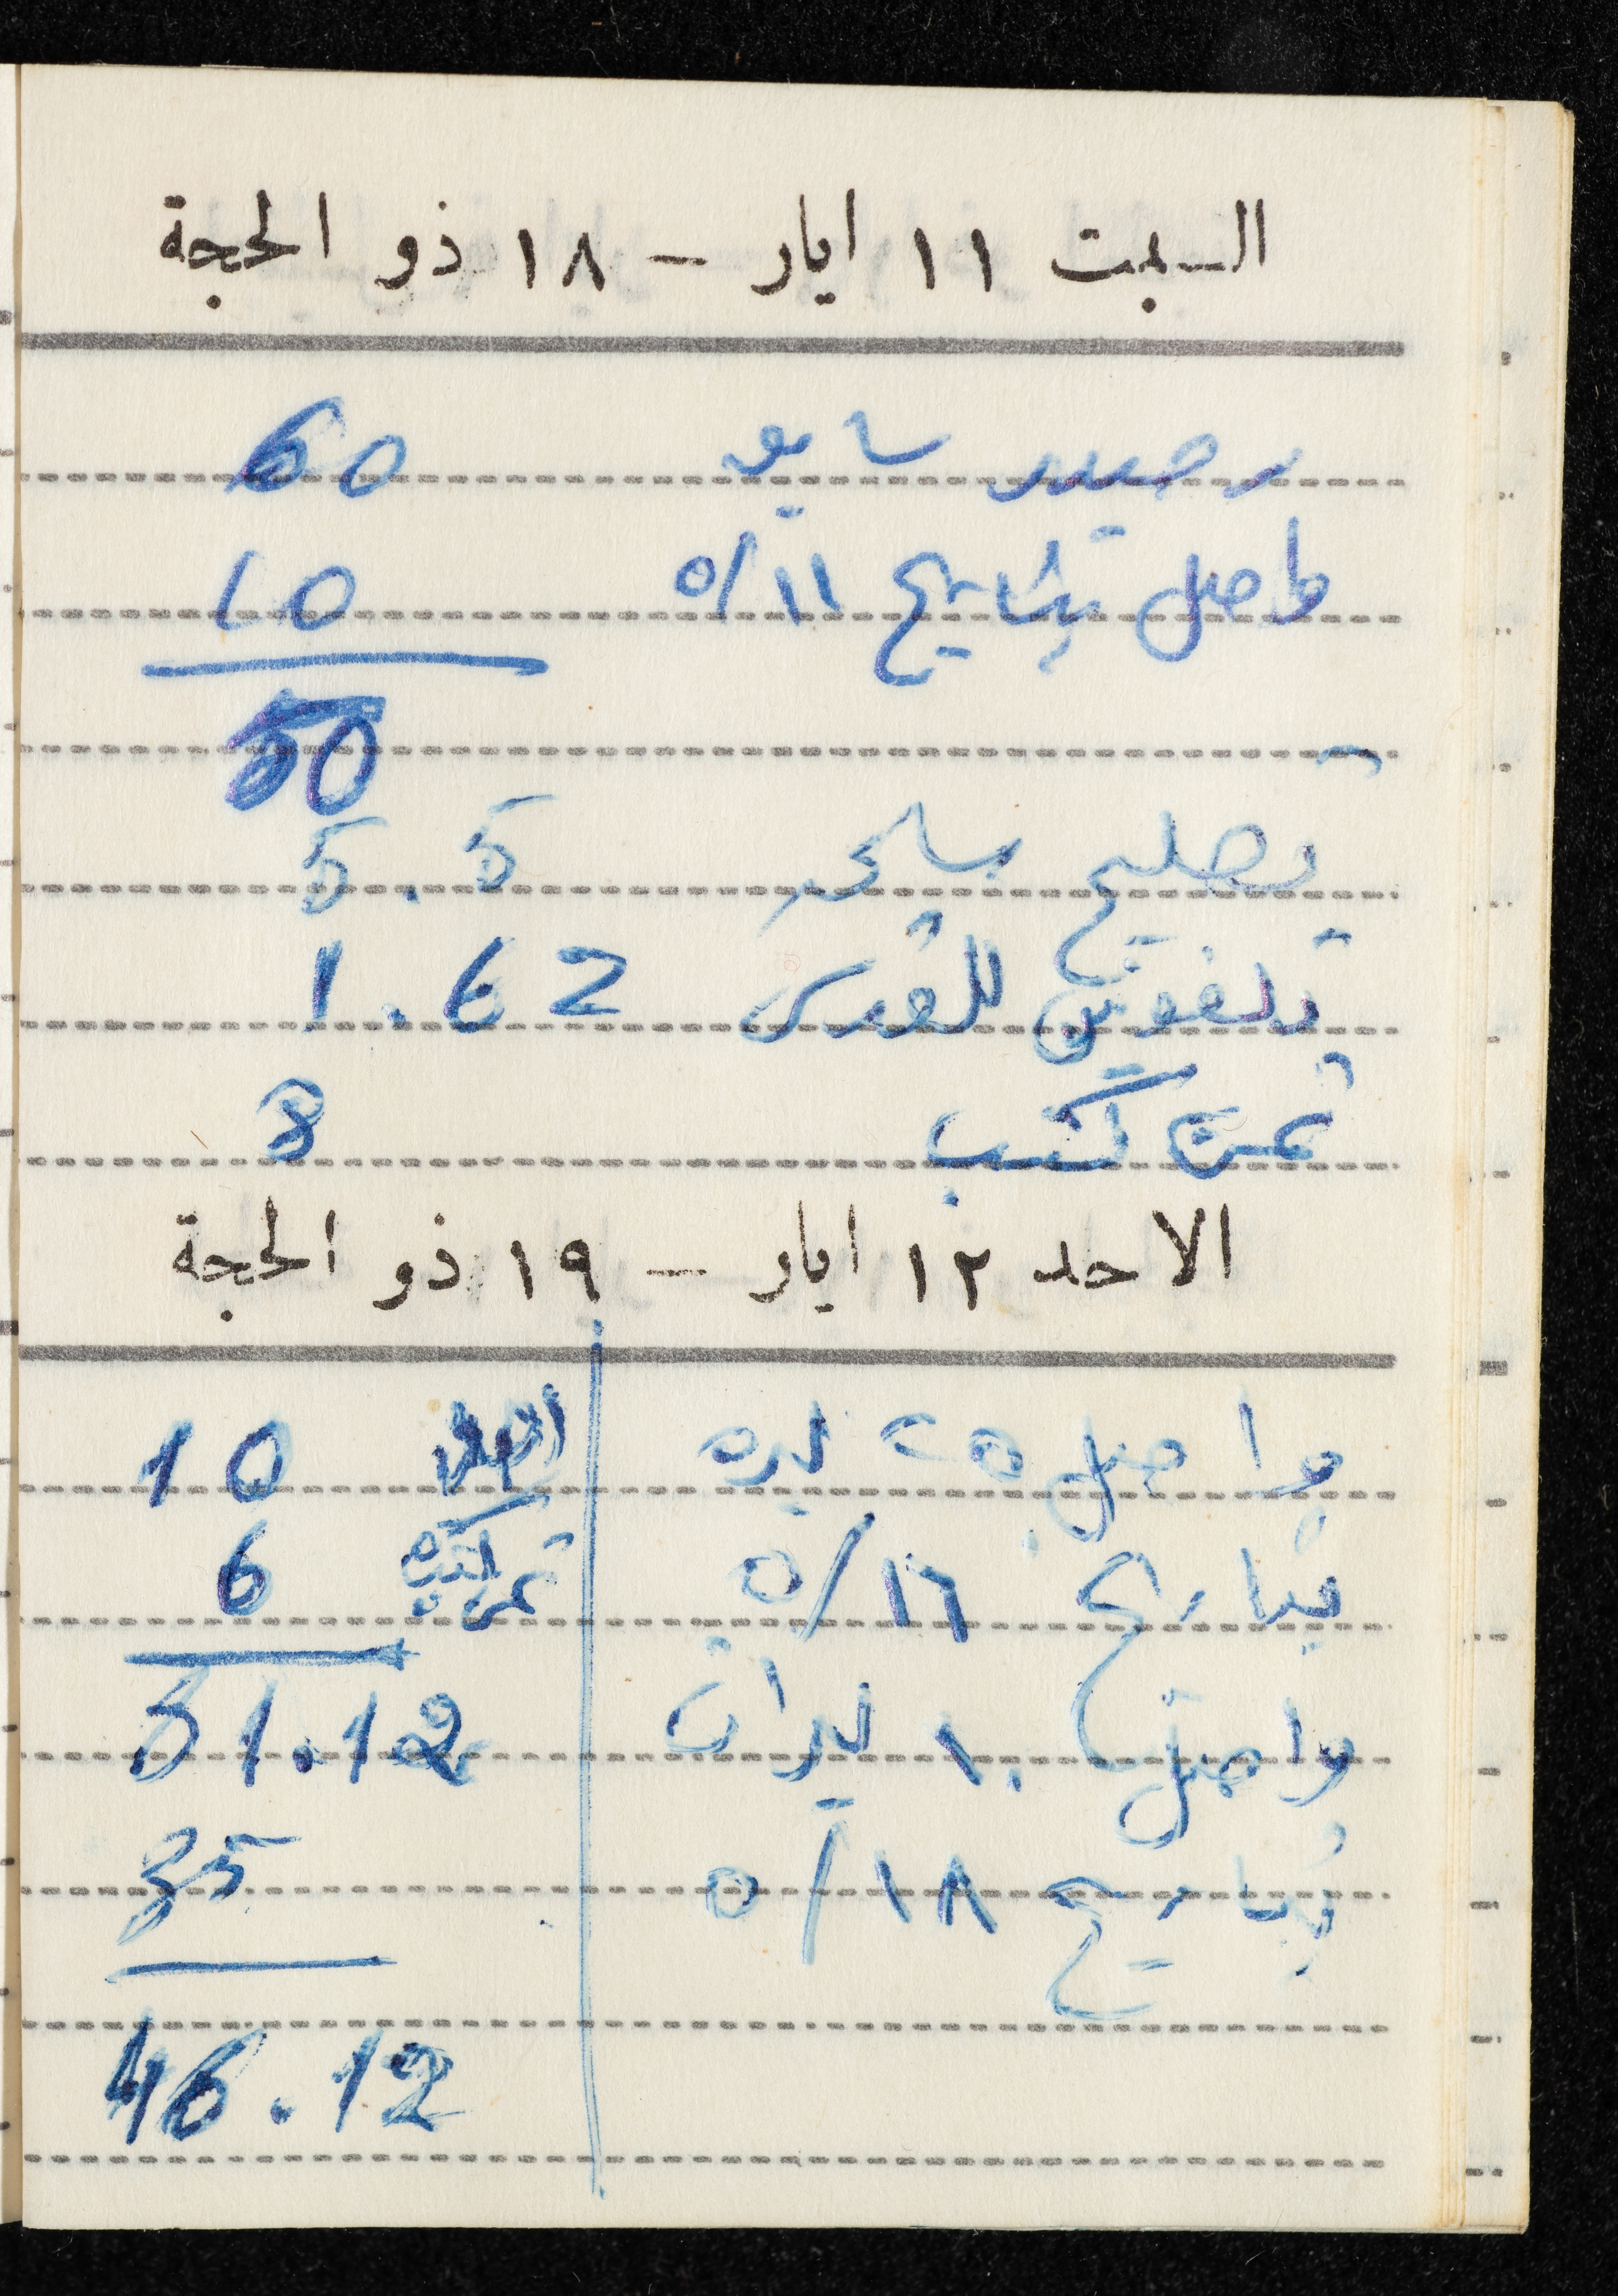 السبت ١١ ايار – ١٨ ذو الحجة
رصيد سابق 60
واصل بتاريخ ٥/١١ 10
50
تصليح 5.5
تلفون للقدس 1.62
ثمن كتب 8
الاحد ١٢ ايار – ١٩ ذو الحجة
واصل ٢٥ ليره 10
بتاريخ ٥/١٦ ثمن كتب 6
واصل ١٠ ليرات 31.12
بتاريخ ٥/١٨ 35
46.12